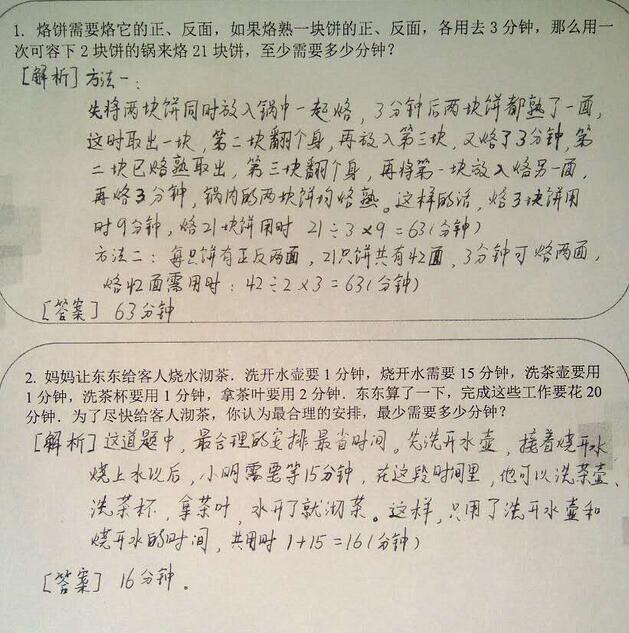 1. 烙饼需要烙它的正、反面，如果烙熟一块饼的正、反面，各用去 3 分钟，那么用一
次可容下 2 块饼的锅来烙 21 块饼，至少需要多少分钟？
[解析] 方法一：
先将两块饼同时放入锅中一起烙，3分钟后两块饼都熟了一面，
这时取出一块，第二块翻个身，再放入第三块，又烙了3分钟，第
二块已烙熟取出，第三块翻个身，再将第一块放入烙另一面，
再烙3分钟，锅内的两块饼均烙熟。这样的话，烙3块饼用
时9分钟，烙21块饼用时 21÷3×9=63(分钟)
方法二：每只饼有正反两面，21只饼共有42面，3分钟可烙两面，
烙42面需用时：42÷2×3=63(分钟)
[答案] 63分钟
2. 妈妈让东东给客人烧水沏茶．洗开水壶要 1 分钟，烧开水需要 15 分钟，洗茶壶要用
1 分钟，洗茶杯要用 1 分钟，拿茶叶要用 2 分钟．东东算了一下，完成这些工作要花 20
分钟．为了尽快给客人沏茶，你认为最合理的安排，最少需要多少分钟？
[解析] 这道题中，最合理的安排最省时间。先洗开水壶，接着烧开水
烧上水以后，小明需要等15分钟，在这段时间里，他可以洗茶壶、
洗茶杯，拿茶叶，水开了就沏茶。这样，只用了洗开水壶和
烧开水的时间，共用时 1+15=16(分钟)
[答案] 16分钟．